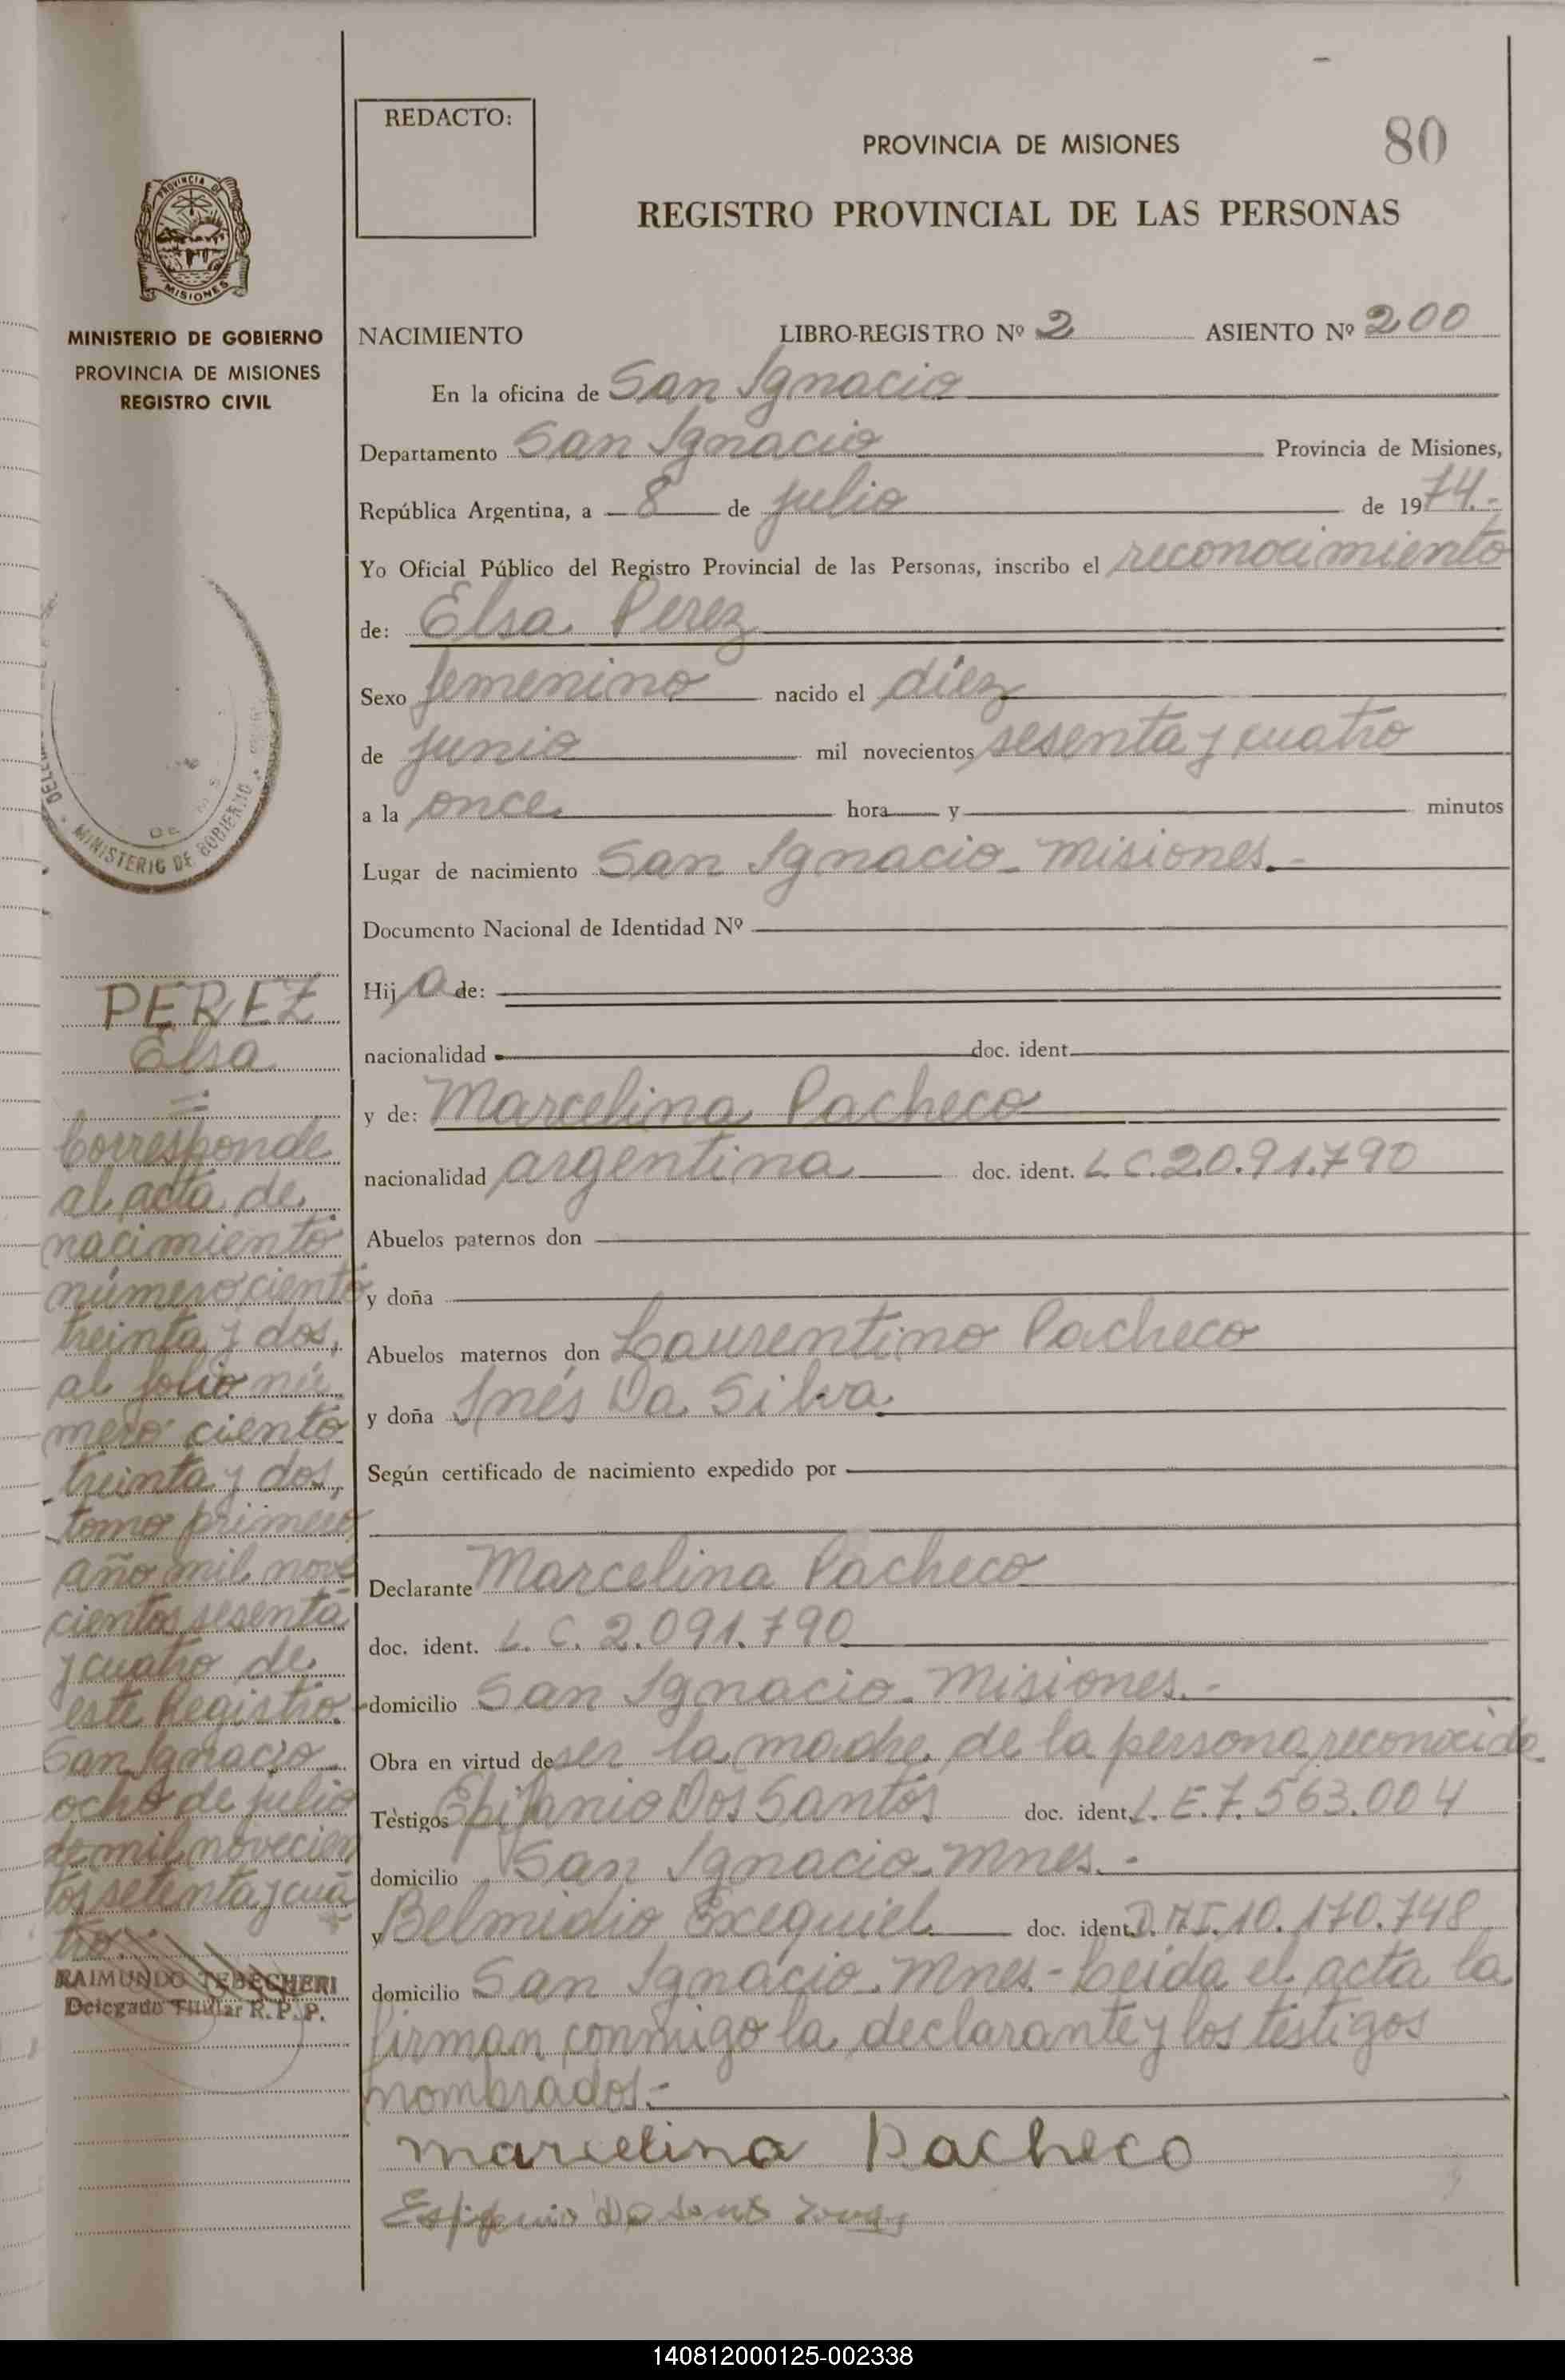 REDACTO:
PROVINCIA DE MISIONES
80
REGISTRO PROVINCIAL DE LAS PERSONAS
PROVINCIA DE
MISIONES
MINISTERIO DE GOBIERNO
PROVINCIA DE MISIONES
REGISTRO CIVIL
NACIMIENTO LIBRO-REGISTRO Nº 2 ASIENTO Nº 200
En la oficina de San Ignacio
Departamento San Ignacio Provincia de Misiones,
República Argentina, a 8 de julio de 1974.-
Yo Oficial Público del Registro Provincial de las Personas, inscribo el reconocimiento
de: Elsa Perez
Sexo femenino nacido el diez
de junio mil novecientos sesenta y cuatro
a la once hora y minutos
Lugar de nacimiento San Ignacio - Misiones.-
Documento Nacional de Identidad Nº
Hij a de:
nacionalidad doc. ident.
y de: Marcelina Pacheco
nacionalidad argentina doc. ident. L.C. 2.091.790
Abuelos paternos don
y doña
Abuelos maternos don Laurentino Pacheco
y doña Inés Da Silva
Según certificado de nacimiento expedido por
Declarante Marcelina Pacheco
doc. ident. L. C. 2.091.790
domicilio San Ignacio - Misiones.-
Obra en virtud de ser la madre de la persona reconocida
Testigos Epifanio Dos Santos doc. ident. L.E. 7.563.004
domicilio San Ignacio - Mnes.-
y Belmidio Exequiel doc. ident. D.N.I. 10.170.748
domicilio San Ignacio - Mnes.- Leida el acta la
firman conmigo la declarante y los testigos
nombrados.-
marcelina Pacheco
MINISTERIO DE GOBIERNO
PEREZ
Elsa
=
Corresponde
al acta de
nacimiento
número ciento
treinta y dos,
al folio nú
mero ciento
treinta y dos,
tomo primero
año mil nove
cientos sesenta
y cuatro de
este Registro.
San Ignacio
ocho de julio
de mil novecien
tos setenta y cua
tro.
RAIMUNDO TEBECHERI
Delegado Titular R.P.P.
140812000125-002338